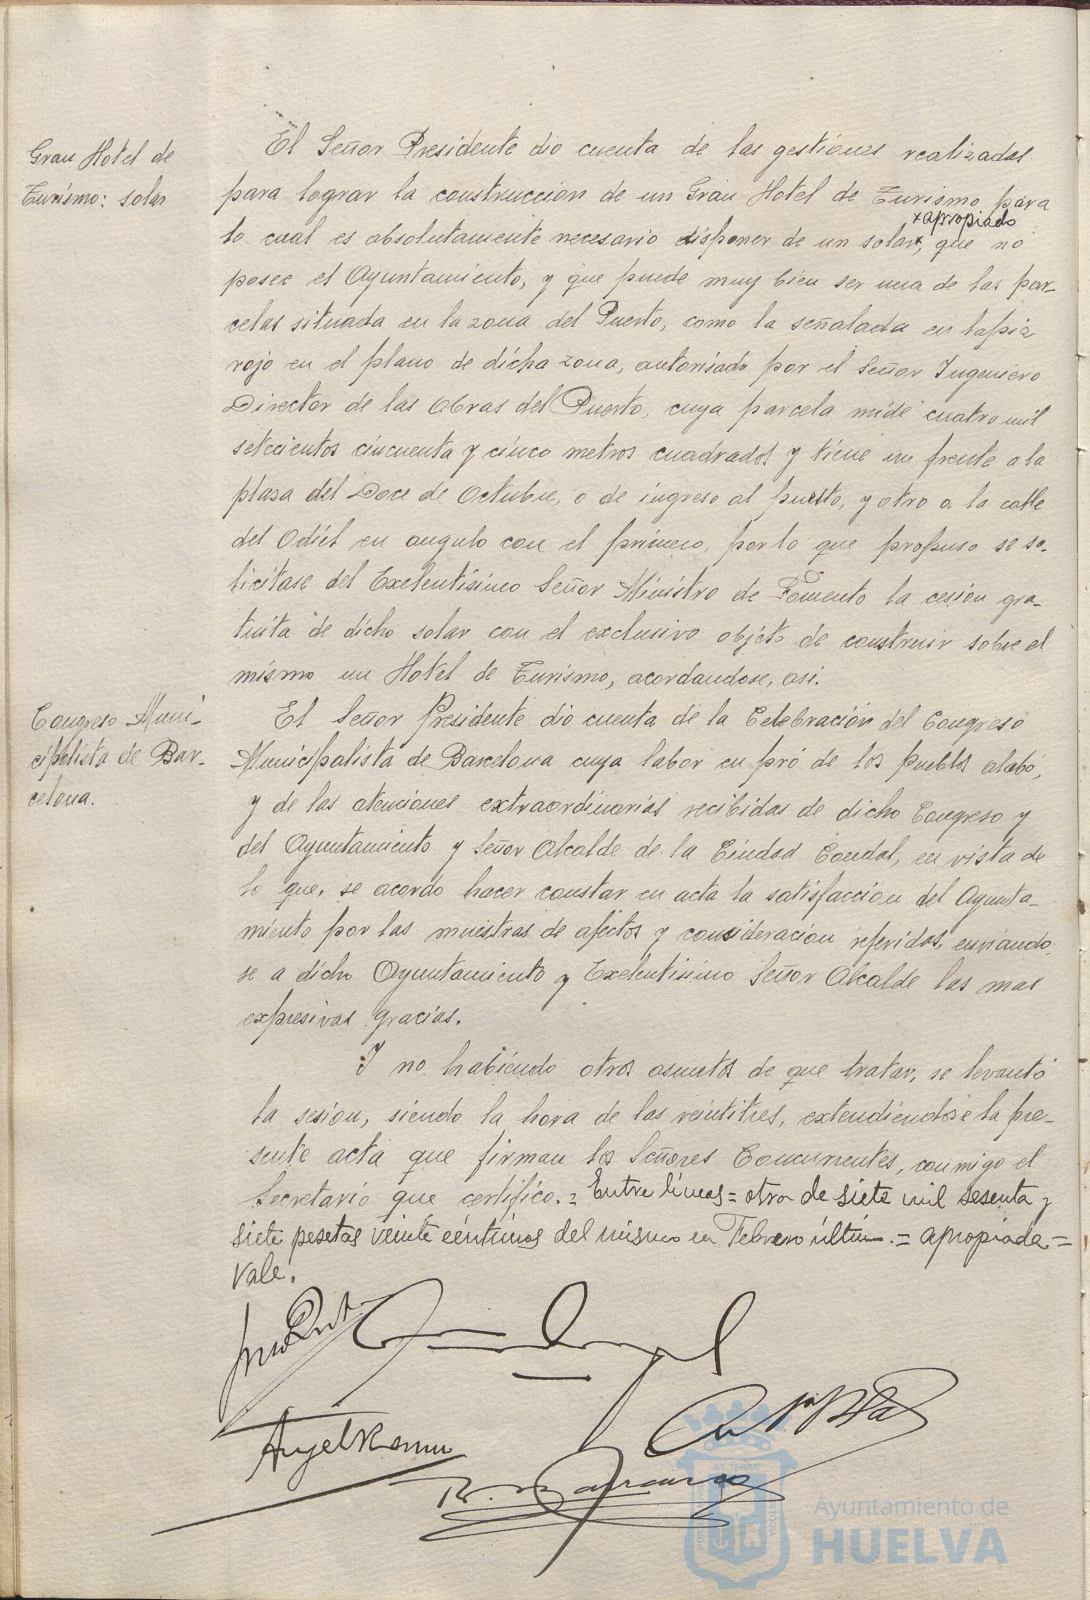 Gran Hotel de
Turismo: solar
El Señor Presidente dio cuenta de las gestiones realizadas
para lograr la construccion de un Gran Hotel de Turismo para
x apropiado
lo cual es absolutamente necesario disponer de un solar x, que no
posee el Ayuntamiento, y que puede muy bien ser una de las par-
celas situada en la zona del Puerto, como la señalada en lapiz
rojo en el plano de dicha zona, autorizado por el Señor Ingeniero
Director de las Obras del Puerto, cuya parcela mide cuatro mil
setecientos cincuenta y cinco metros cuadrados y tiene un frente a la
plaza del Doce de Octubre, o de ingreso al puerto, y otro a la calle
del Odiel en angulo con el primero, por lo que propuso se so-
licitase del Exelentisimo Señor Ministro de Fomento la cesion gra-
tuita de dicho solar con el exclusivo objeto de construir sobre el
mismo un Hotel de Turismo, acordandose, asi.
Congreso Muni-
cipalista de Bar-
celona.
El Señor Presidente dio cuenta de la Celebración del Congreso
Municipalista de Barcelona cuya labor en pró de los pueblos alabo,
y de las atenciones extraordinarias recibidas de dicho Congreso y
del Ayuntamiento y Señor Alcalde de la Ciudad Condal, en vista de
lo que, se acordo hacer constar en acta la satisfaccion del Ayunta-
miento por las muestras de afectos y consideracion referidas enviando
se a dicho Ayuntamiento y Exelentisimo Señor Alcalde las mas
expresivas gracias.
Y no habiendo otros asuntos de que tratar, se levantó
la sesion, siendo la hora de las veintitres, extendiendose la pre-
sente acta que firman los Señores Concurrentes, conmigo el
Secretario que certifico. = Entre lineas = otra de siete mil sesenta y
siete pesetas veinte céntimos del mismo en Febrero último. = apropiado =
vale.
Ayuntamiento de
HUELVA